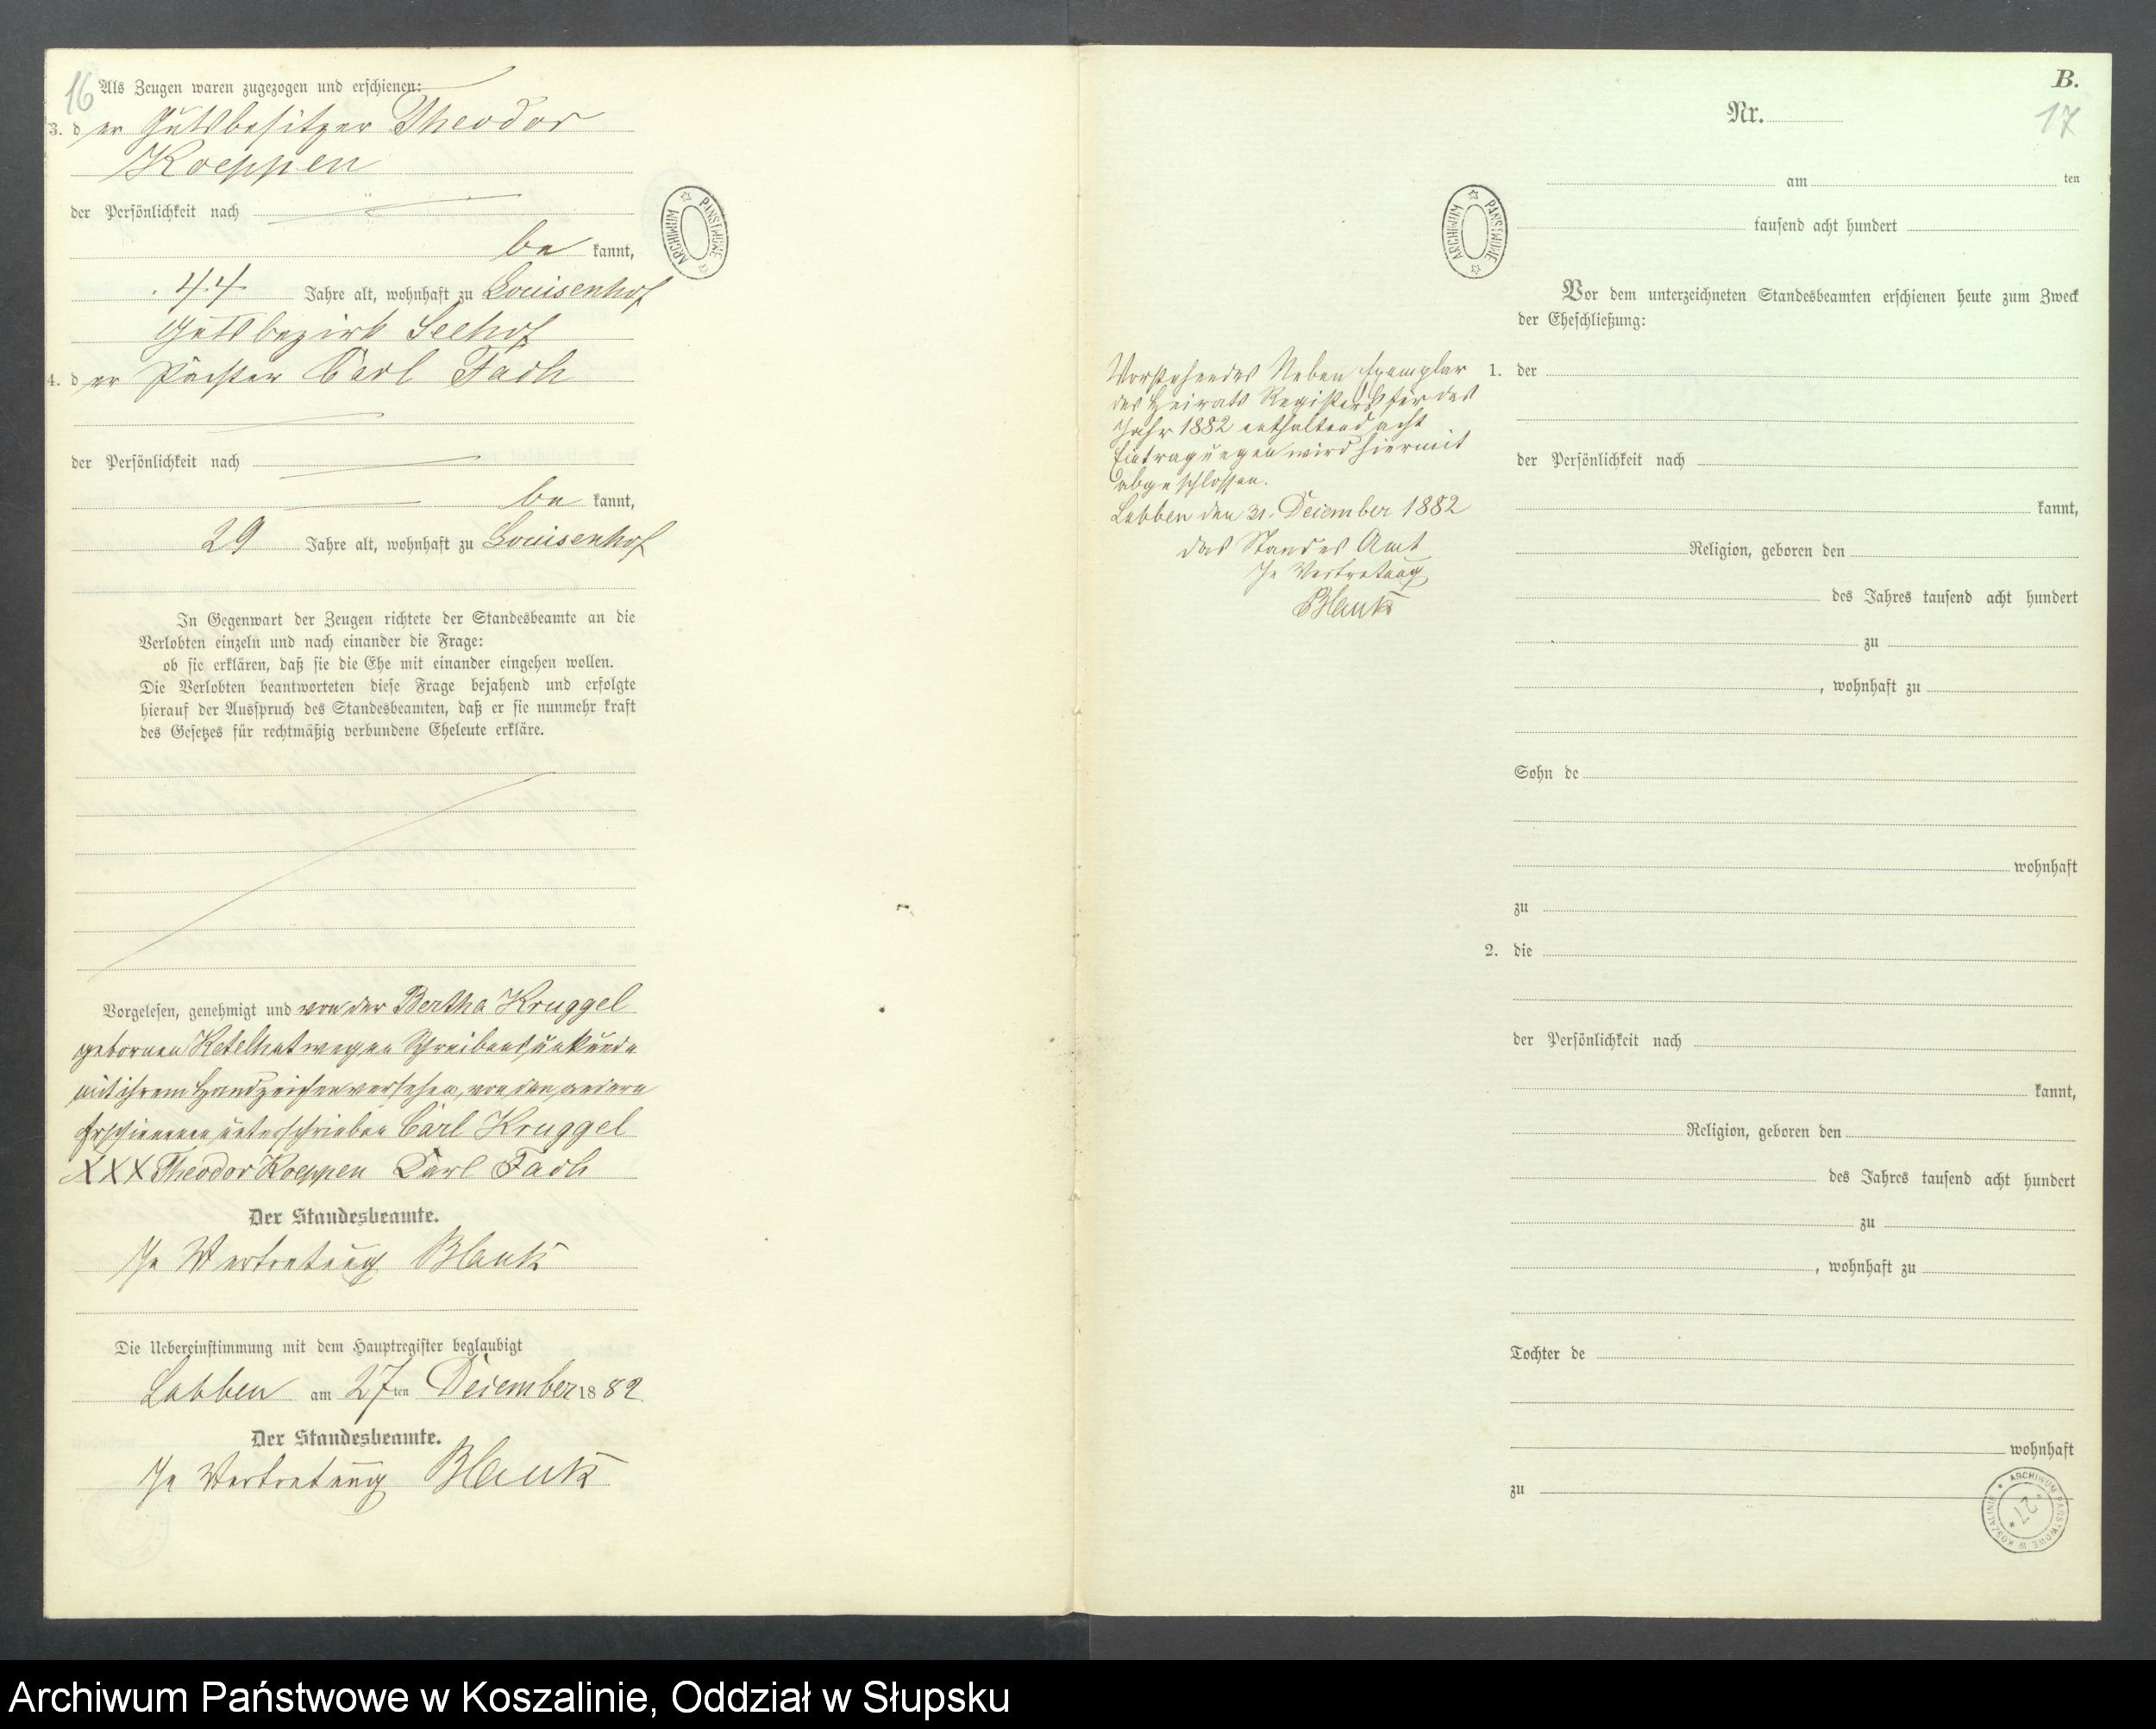 16
Als Zeugen waren zugezogen und erschienen:
3. d er Gutsbesitzer Theodor
Koeppen
der Persönlichkeit nach
be kannt,
44 Jahre alt, wohnhaft zu Louisenhof
Gutsbezirk Seehof
4. d er Pächter Carl Fach
der Persönlichkeit nach
be kannt,
29 Jahre alt, wohnhaft zu Louisenhof
In Gegenwart der Zeugen richtete der Standesbeamte an die
Verlobten einzeln und nach einander die Frage:
ob sie erklären, daß sie die Ehe mit einander eingehen wollen.
Die Verlobten beantworteten diese Frage bejahend und erfolgte
hierauf der Ausspruch des Standesbeamten, daß er sie nunmehr kraft
des Gesetzes für rechtmäßig verbundene Eheleute erkläre.
Vorgelesen, genehmigt und von der Bertha Kruggel
gebornen Ketelhut wegen Schreibensunkunde
mit ihrem Handzeichen versehen, von den andern
Erschienenen unterschrieben Carl Kruggel
XXX Theodor Koeppen Carl Fach
Der Standesbeamte.
In Vertretung Blank
Die Uebereinstimmung mit dem Hauptregister beglaubigt
Labben am 27ten December 1882
Der Standesbeamte.
In Vertretung Blank
ARCHIWUM PAŃSTWOWE
ARCHIWUM PAŃSTWOWE
Vorstehendes Neben Exemplar
des Heirats Registers für das
Jahr 1882 enthaltend acht
Eintragungen wird hiermit
abgeschlossen.
Labben den 31. December 1882
Das Standes Amt
In Vertretung
Blank
B.
17
Nr.
am ten
tausend acht hundert
Vor dem unterzeichneten Standesbeamten erschienen heute zum Zweck
der Eheschließung:
1. der
der Persönlichkeit nach
kannt,
Religion, geboren den
des Jahres tausend acht hundert
zu
, wohnhaft zu
Sohn de
wohnhaft
zu
2. die
der Persönlichkeit nach
kannt,
Religion, geboren den
des Jahres tausend acht hundert
zu
, wohnhaft zu
Tochter de
wohnhaft
zu
ARCHIWUM PAŃSTWOWE W KOSZALINIE
Archiwum Państwowe w Koszalinie, Oddział w Słupsku